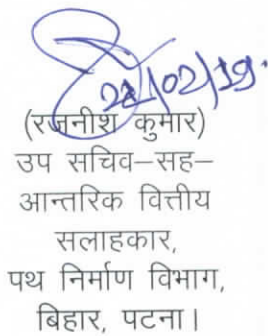 22/02/19.
(रजनीश कुमार)
उप सचिव–सह–
आन्तरिक वित्तीय
सलाहकार,
पथ निर्माण विभाग,
बिहार, पटना।